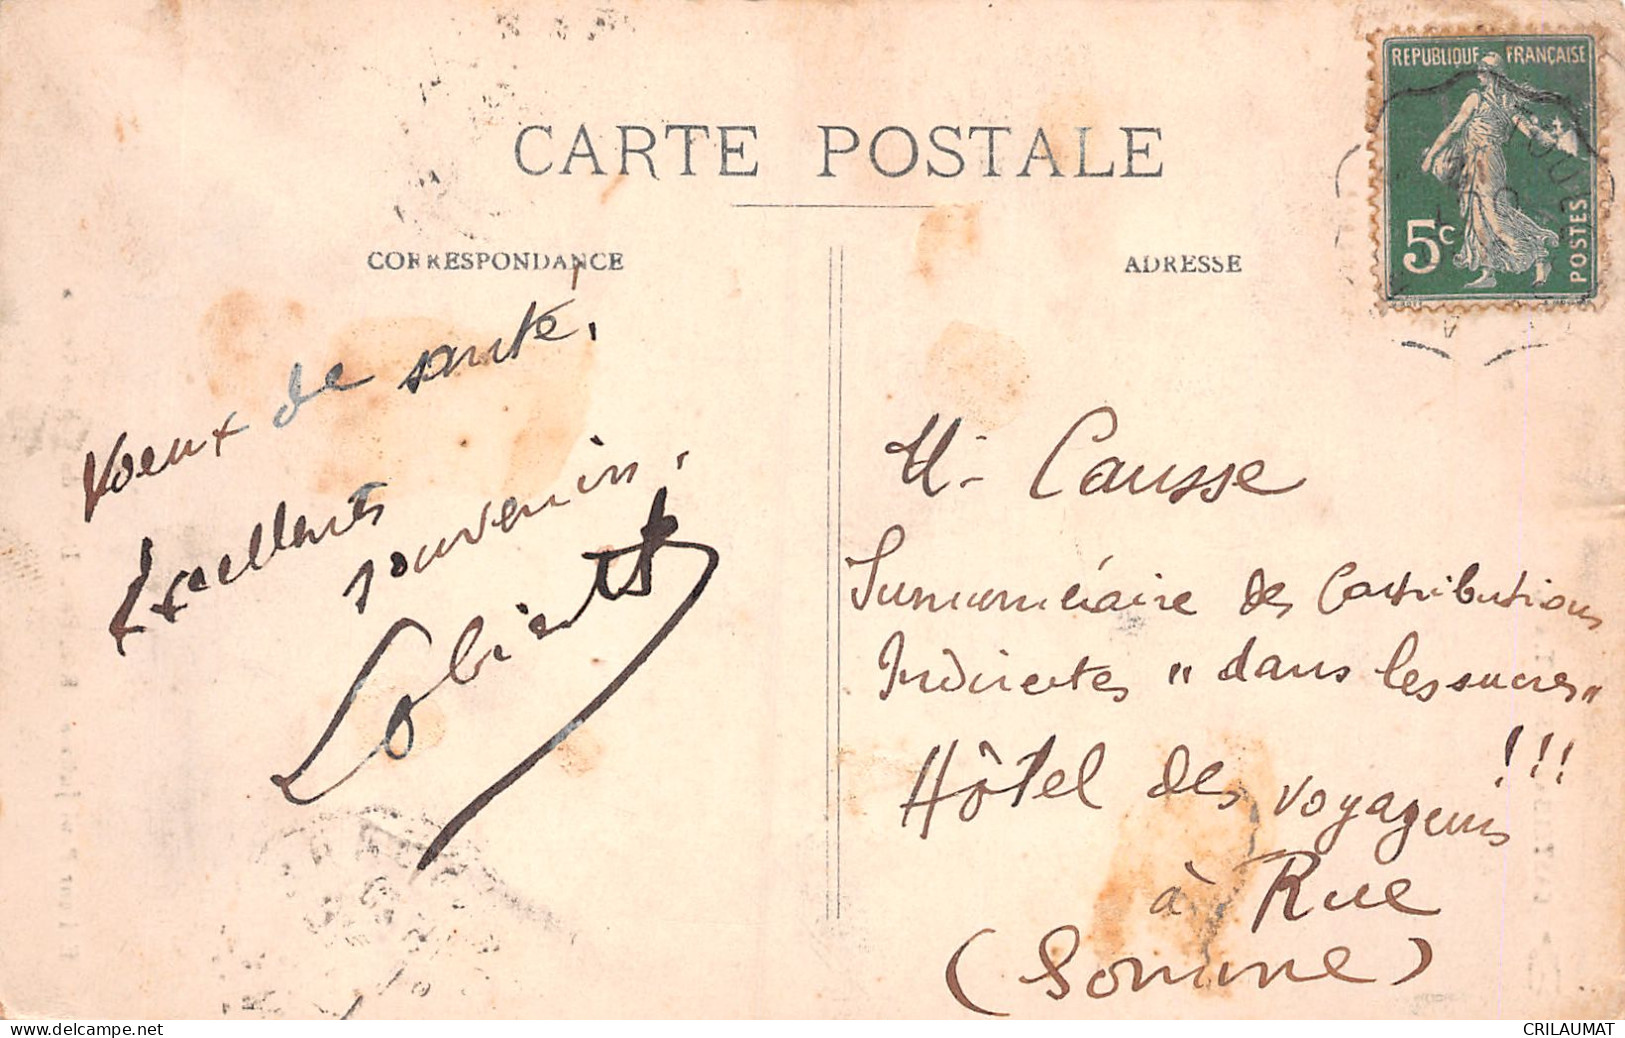 CARTE POSTALE
CORRESPONDANCE
ADRESSE
REPUBLIQUE FRANÇAISE
5c
POSTES
Voeux de santé.
Excellents
souvenirs.
M. Causse
Surnuméraire des Contributions
Indirectes "dans les sucres"
!!!
Hôtel des voyageurs
à Rue
(Somme)
CRILAUMAT